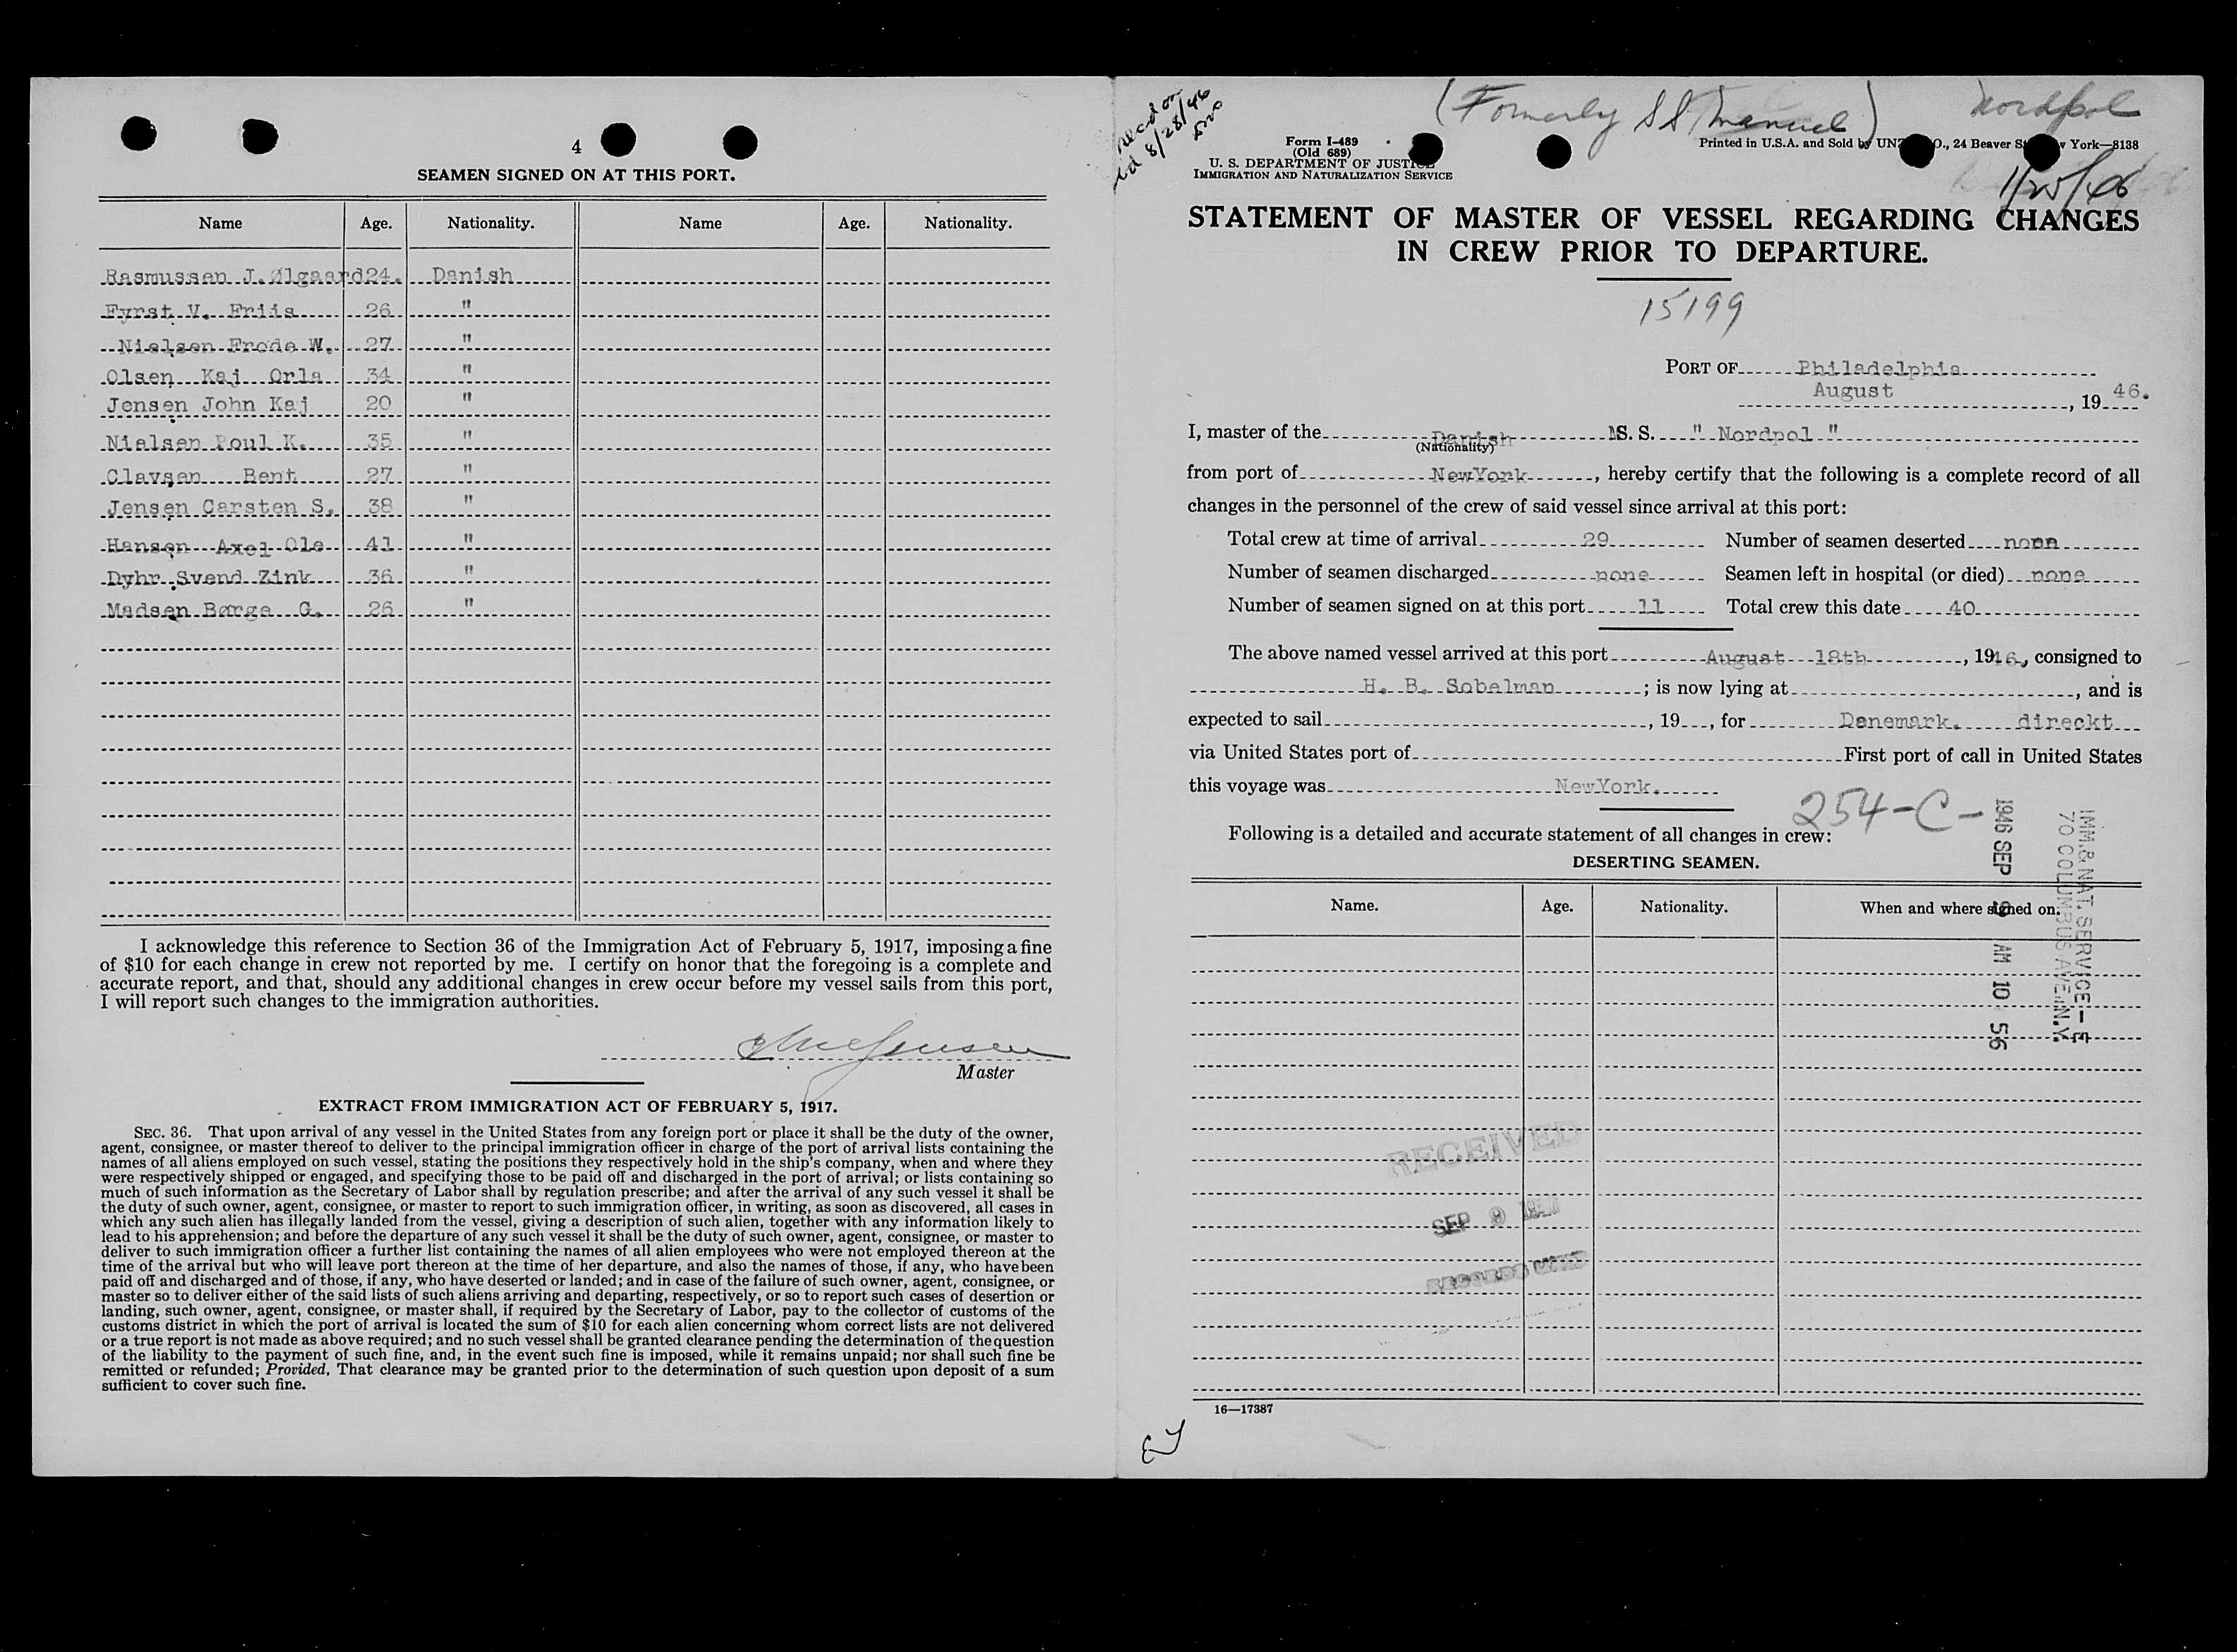 4
SEAMEN SIGNED ON AT THIS PORT.
Name Age. Nationality. Name Age. Nationality.
Rasmussen J. Ølgaard 24. Danish
Fyrst V. Friis 26 "
Nielsen Frode W. 27 "
Olsen Kaj Orla 34 "
Jensen John Kaj 20 "
Nielsen Poul K. 35 "
Clavsen Bent 27 "
Jensen Carsten S. 38 "
Hansen Axel Ole 41 "
Dyhr Svend Zink 36 "
Madsen Børge G. 26 "
I acknowledge this reference to Section 36 of the Immigration Act of February 5, 1917, imposing a fine
of $10 for each change in crew not reported by me. I certify on honor that the foregoing is a complete and
accurate report, and that, should any additional changes in crew occur before my vessel sails from this port,
I will report such changes to the immigration authorities.
Master
EXTRACT FROM IMMIGRATION ACT OF FEBRUARY 5, 1917.
SEC. 36. That upon arrival of any vessel in the United States from any foreign port or place it shall be the duty of the owner,
agent, consignee, or master thereof to deliver to the principal immigration officer in charge of the port of arrival lists containing the
names of all aliens employed on such vessel, stating the positions they respectively hold in the ship's company, when and where they
were respectively shipped or engaged, and specifying those to be paid off and discharged in the port of arrival; or lists containing so
much of such information as the Secretary of Labor shall by regulation prescribe; and after the arrival of any such vessel it shall be
the duty of such owner, agent, consignee, or master to report to such immigration officer, in writing, as soon as discovered, all cases in
which any such alien has illegally landed from the vessel, giving a description of such alien, together with any information likely to
lead to his apprehension; and before the departure of any such vessel it shall be the duty of such owner, agent, consignee, or master to
deliver to such immigration officer a further list containing the names of all alien employees who were not employed thereon at the
time of the arrival but who will leave port thereon at the time of her departure, and also the names of those, if any, who have been
paid off and discharged and of those, if any, who have deserted or landed; and in case of the failure of such owner, agent, consignee, or
master so to deliver either of the said lists of such aliens arriving and departing, respectively, or so to report such cases of desertion or
landing, such owner, agent, consignee, or master shall, if required by the Secretary of Labor, pay to the collector of customs of the
customs district in which the port of arrival is located the sum of $10 for each alien concerning whom correct lists are not delivered
or a true report is not made as above required; and no such vessel shall be granted clearance pending the determination of the question
of the liability to the payment of such fine, and, in the event such fine is imposed, while it remains unpaid; nor shall such fine be
remitted or refunded; Provided, That clearance may be granted prior to the determination of such question upon deposit of a sum
sufficient to cover such fine.
8/28/46
(Formerly SS Manuel) Nordpol
Form I-489
(Old 689)
U. S. DEPARTMENT OF JUSTICE
IMMIGRATION AND NATURALIZATION SERVICE
Printed in U.S.A. and Sold by UNZ CO., 24 Beaver St. New York—8138
STATEMENT OF MASTER OF VESSEL REGARDING CHANGES
IN CREW PRIOR TO DEPARTURE.
15199
PORT OF Philadelphia
August , 19 46.
I, master of the Danish MS. S. " Nordpol "
(Nationality)
from port of NewYork , hereby certify that the following is a complete record of all
changes in the personnel of the crew of said vessel since arrival at this port:
Total crew at time of arrival 29 Number of seamen deserted none
Number of seamen discharged none Seamen left in hospital (or died) none
Number of seamen signed on at this port 11 Total crew this date 40
The above named vessel arrived at this port August 18th , 1946, consigned to
H. B. Sobelman ; is now lying at , and is
expected to sail , 19 , for Denemark. direckt
via United States port of First port of call in United States
this voyage was NewYork.
254-C-
Following is a detailed and accurate statement of all changes in crew:
DESERTING SEAMEN.
Name. Age. Nationality. When and where signed on.
1946 SEP 9 AM 10 56
IMM. & NAT. SERVICE - E
70 COLUMBUS AVE. N.Y.
RECEIVED
SEP 9 1946
16—17387